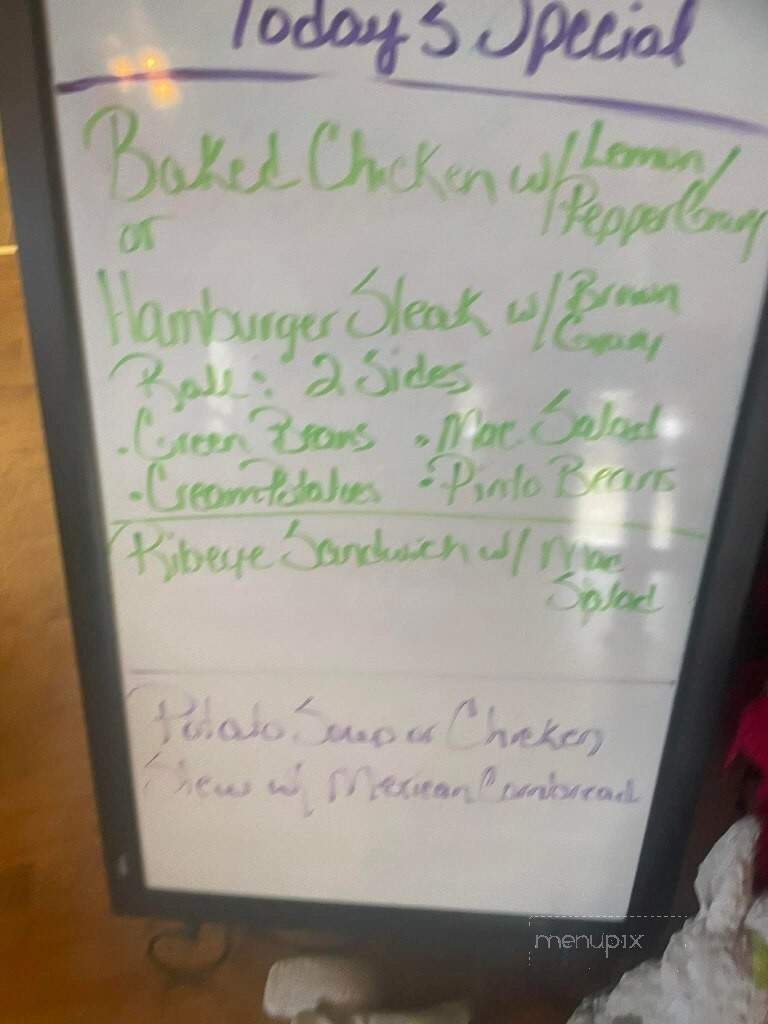 Today's Special
Baked Chicken w/ Lemon/
Pepper Gravy
or
Hamburger Steak w/ Brown
Gravy
Roll: 2 Sides
• Green Beans • Mac Salad
• Cream Potatoes • Pinto Beans
Ribeye Sandwich w/ Mac
Salad
Potato Soup or Chicken
Stew w/ Mexican Cornbread
menupix